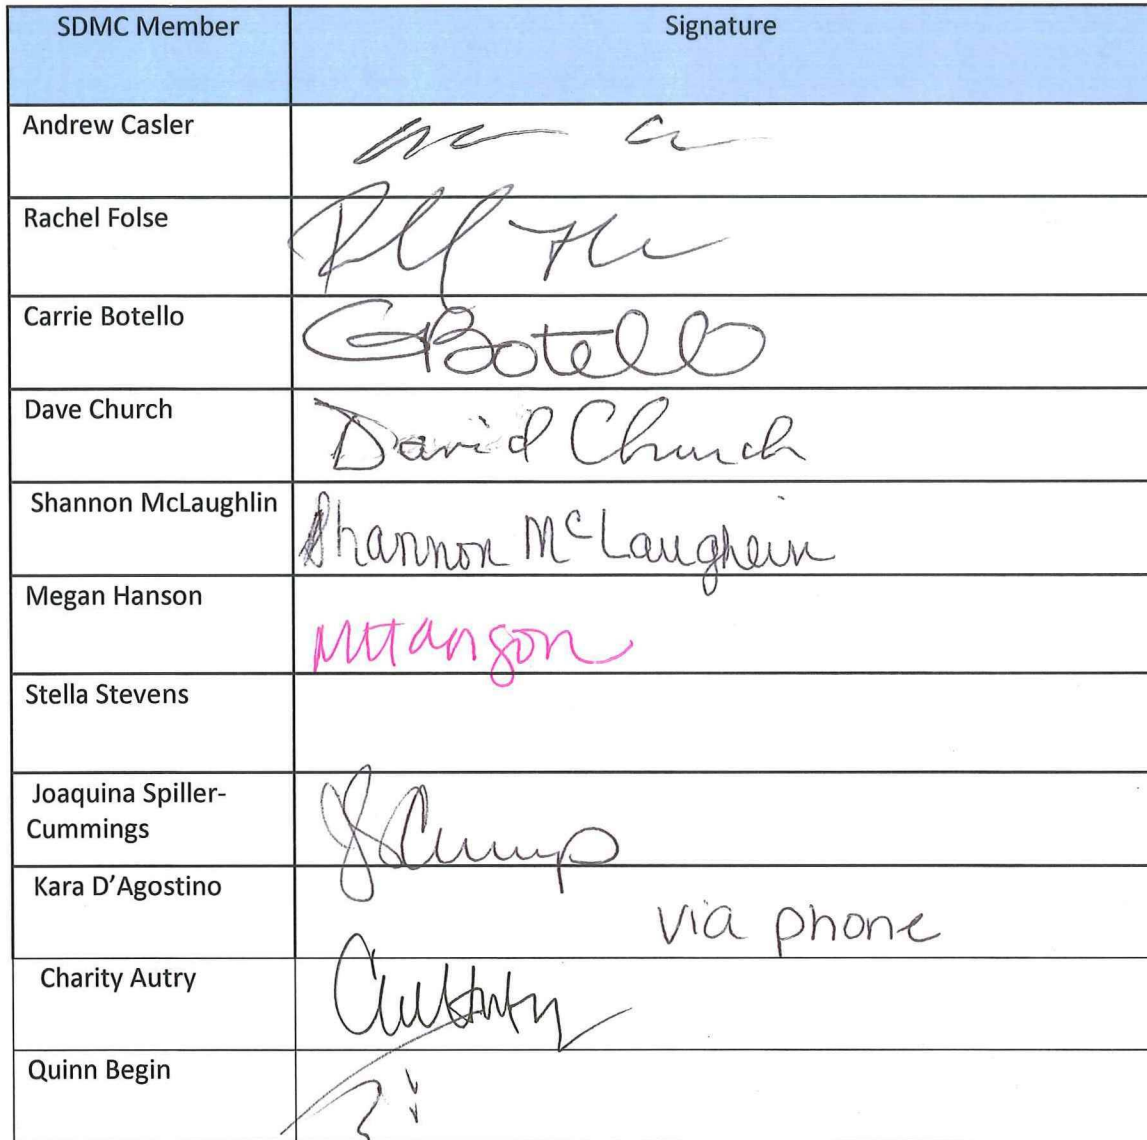 SDMC Member Signature
Andrew Casler
Rachel Folse
Carrie Botello CBotello
Dave Church David Church
Shannon McLaughlin Shannon McLaughlin
Megan Hanson MHanson
Stella Stevens
Joaquina Spiller-
Cummings
Kara D’Agostino via phone
Charity Autry
Quinn Begin